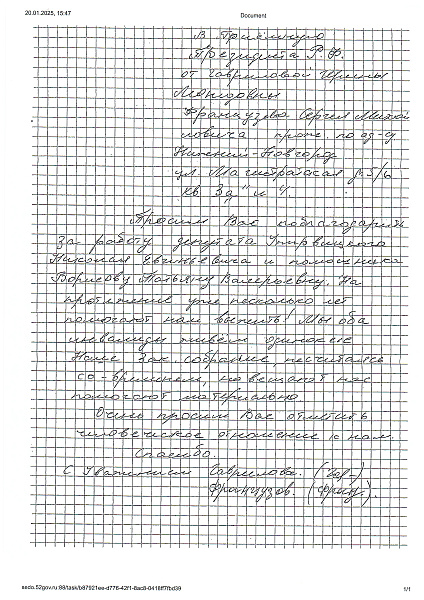 20.01.2025, 15:47
Document
В Приёмную
Президента Р.Ф.
от Гавриловой Ирины
Леонидовны
Французова Сергея Михай
ловича прож. по ад-су
Нижний-Новгород
ул. Магистратская №5/6
кв 3а и 4.
Просим Вас поблагодарить
за работу депутата
Николая Евгеньевича и помощника
Борисову Татьяну Валерьевну. На
протяжение уже несколько лет
помогают нам выжить! Мы оба
инвалиды живём одинокие
Наше Зак. собрание, несчитаясь
со-временем, навещают нас
помогают материально
Очень просим Вас отметить
человеческое отношение к нам.
Спасибо.
С Уважением Гаврилова.
Французов.
sedo.52gov.ru:88/task/b87921ee-d776-42f1-8ac8-0418ff7fbd39
1/1